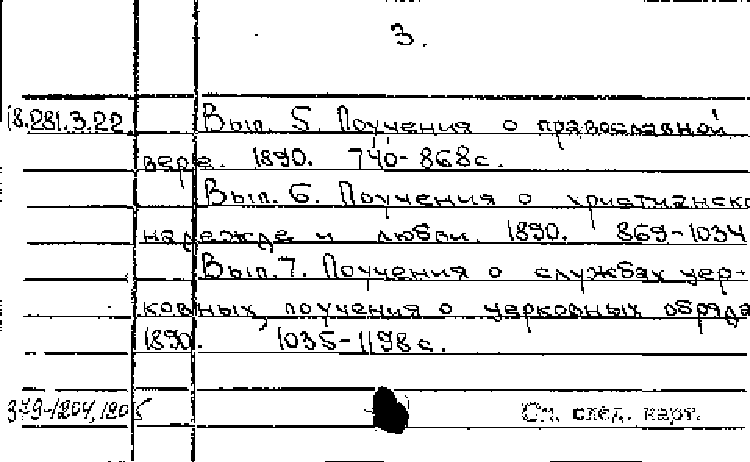 3.
18.281.3.22 Вып. 5. Поучения о православной
вере. 1890. 740-868с.
Вып. 6. Поучения о христианско
надежде и любви. 1890. 869-1034
Вып. 7. Поучения о службах цер-
ковных, поучения о церковных обряда
1890. 1035-1198с.
См. след. карт.